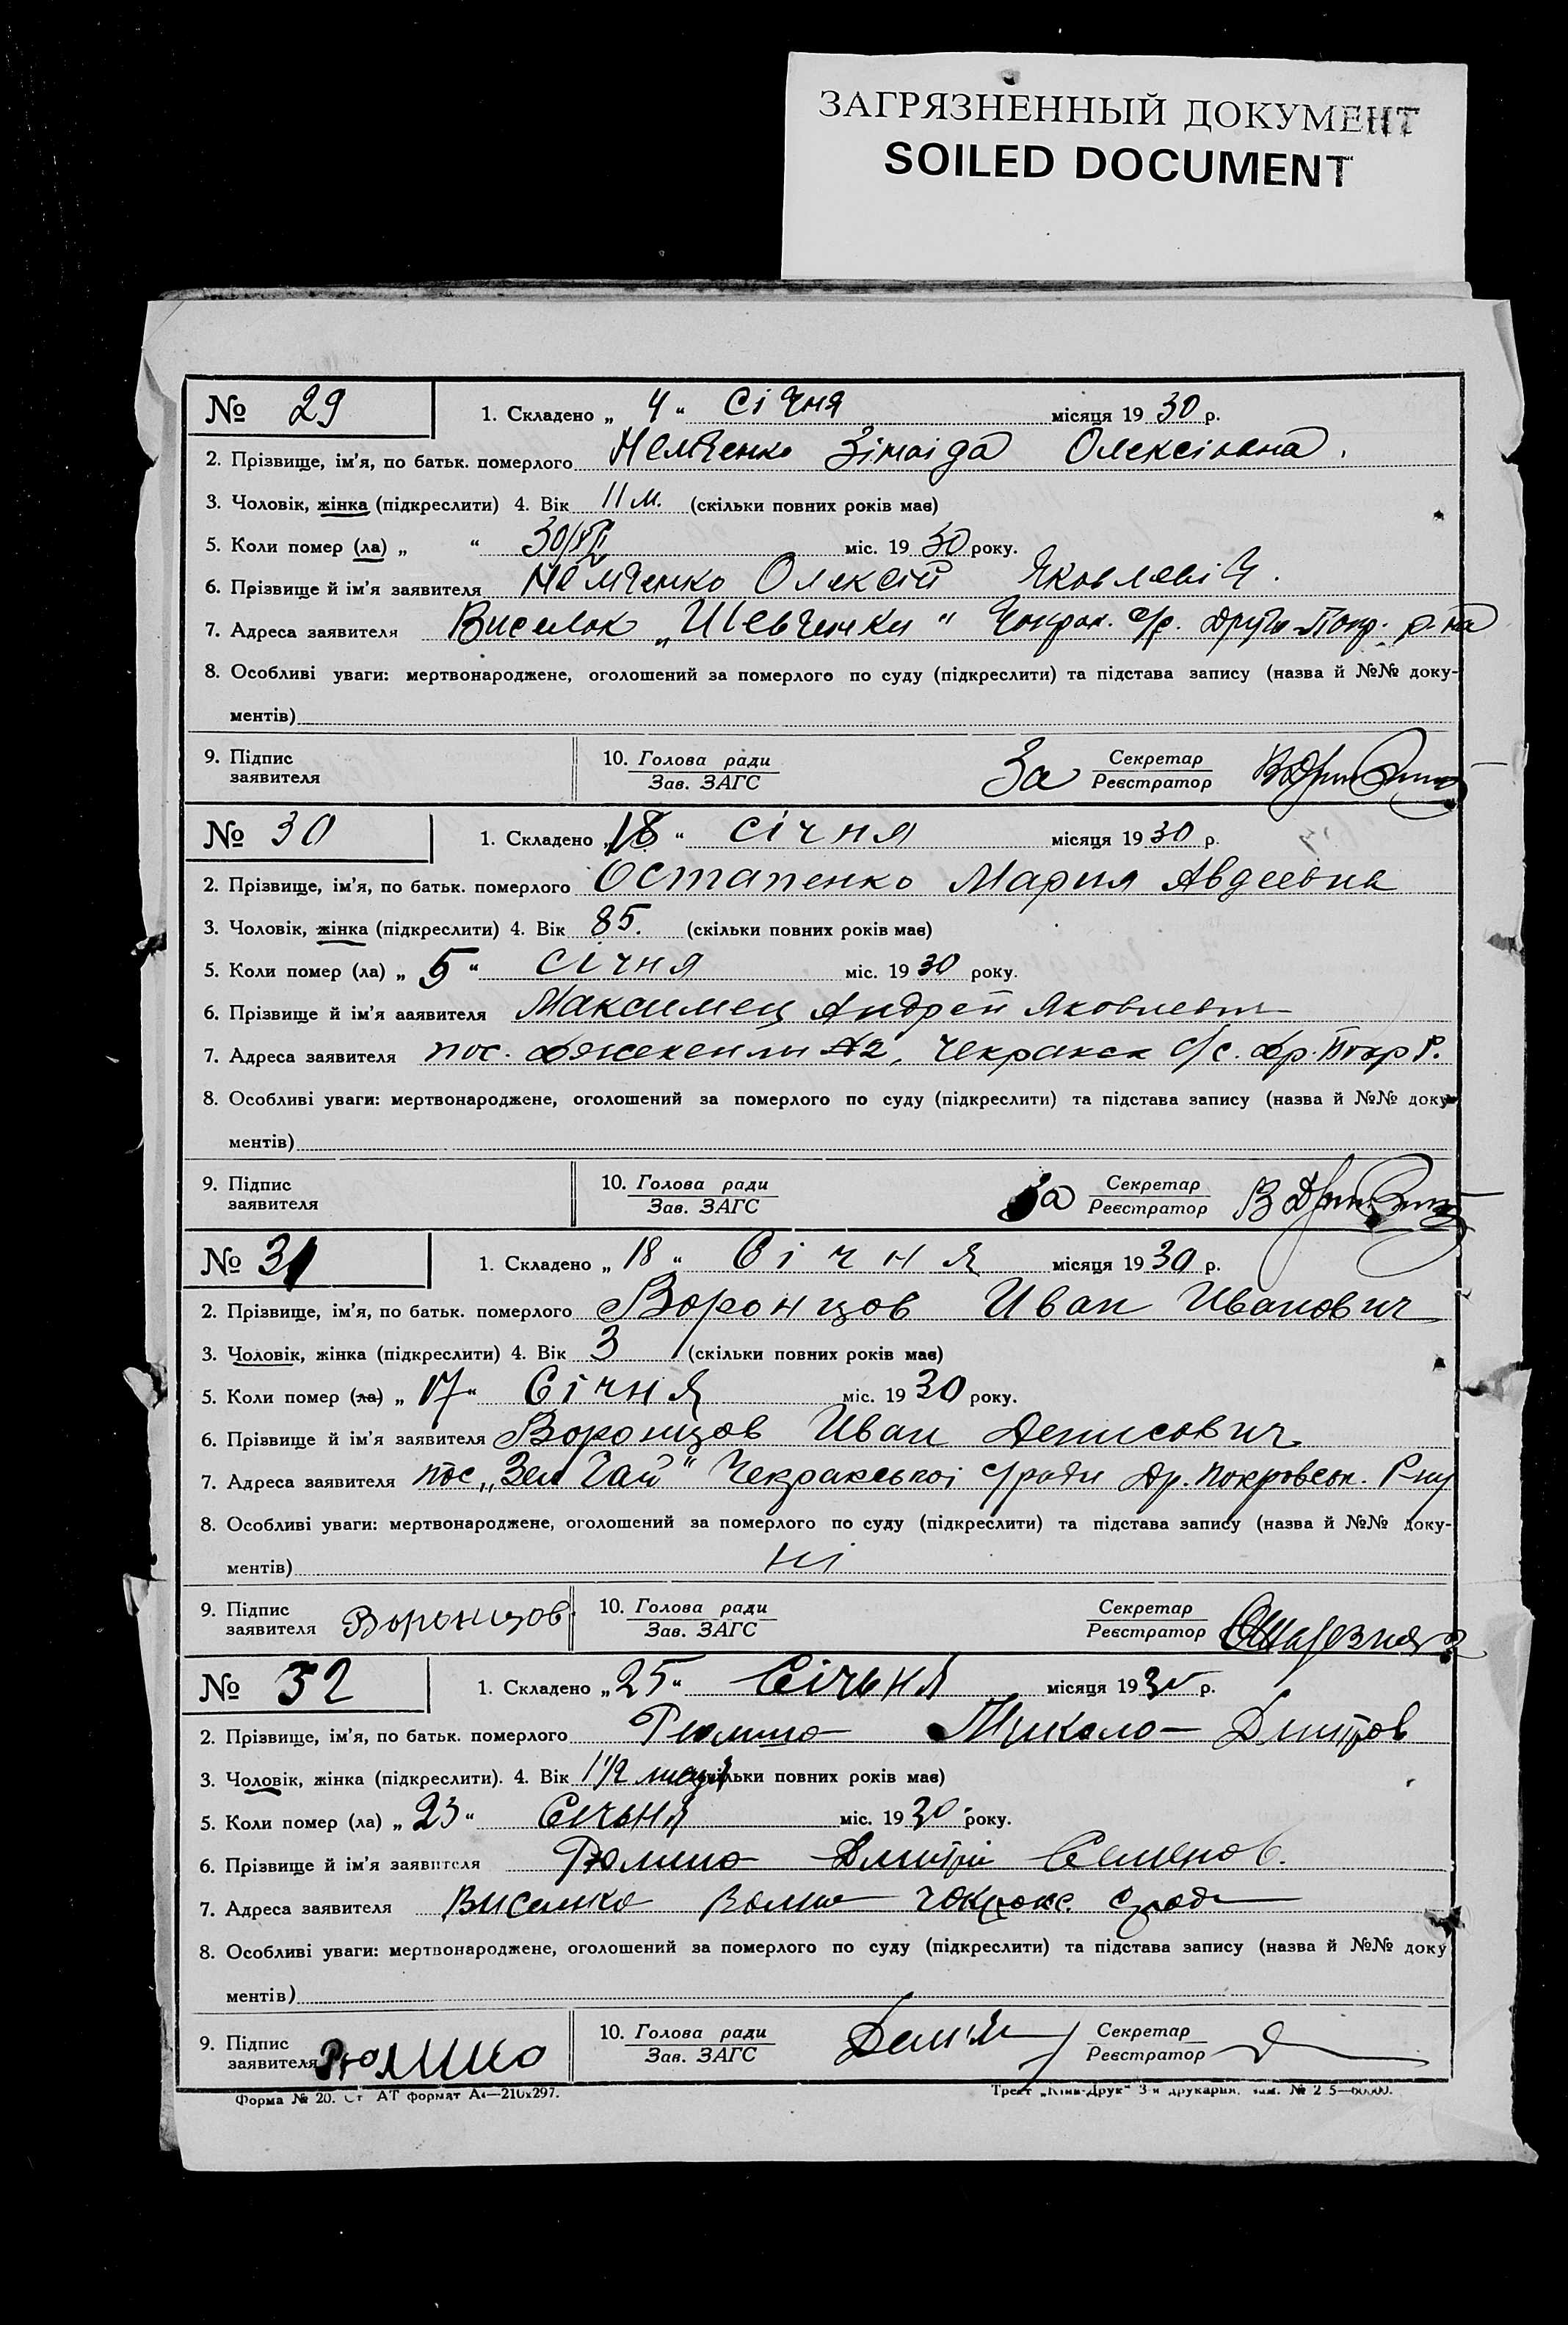 ЗАГРЯЗНЕННЫЙ ДОКУМЕНТ
SOILED DOCUMENT
№ 29
1. Складено „ 4 “ Січня місяця 1930 р.
2. Прізвище, ім'я, по батьк. померлого Немченко Зінаіда Олексіивна.
3. Чоловік, жінка (підкреслити) 4. Вік 11 м. (скільки повних років має)
5. Коли помер (ла) „ “ 30/XII міс. 1930 року.
6. Прізвище й ім'я заявителя Немченко Олексій Яковлевіч.
7. Адреса заявителя Виселок „Шевченки“ Чокрак. с/р. Друго-Покр. р-на
8. Особливі уваги: мертвонароджене, оголошений за померлого по суду (підкреслити) та підстава запису (назва й №№ доку-
ментів)
9. Підпис заявителя
10. Голова ради
Зав. ЗАГС
За Секретар
Реєстратор
№ 30
1. Складено „18“ січня місяця 1930 р.
2. Прізвище, ім'я, по батьк. померлого Остапенко Мария Авдеевна
3. Чоловік, жінка (підкреслити) 4. Вік 85. (скільки повних років має)
5. Коли помер (ла) „ 5 “ січня міс. 1930 року.
6. Прізвище й ім'я заявителя Максимец Андрей Яковлевич
7. Адреса заявителя пос. №2, Чекракск с/с. Др. Покр Р.
8. Особливі уваги: мертвонароджене, оголошений за померлого по суду (підкреслити) та підстава запису (назва й №№ доку-
ментів)
9. Підпис заявителя
10. Голова ради
Зав. ЗАГС
За Секретар
Реєстратор
№ 31
1. Складено „ 18 “ Січня місяця 1930 р.
2. Прізвище, ім'я, по батьк. померлого Воронцов Иван Иванович
3. Чоловік, жінка (підкреслити) 4. Вік 3 (скільки повних років має)
5. Коли помер (ла) „ 17 “ Січня міс. 1930 року.
6. Прізвище й ім'я заявителя Воронцов Иван Денисович
7. Адреса заявителя пос „Зел Гай“ Чекракськоі с/ради Др. Покровськ. Р-ну
8. Особливі уваги: мертвонароджене, оголошений за померлого по суду (підкреслити) та підстава запису (назва й №№ доку-
ментів) ні
9. Підпис заявителя Воронцов
10. Голова ради
Зав. ЗАГС
Секретар
Реєстратор
№ 32
1. Складено „25“ Січьня місяця 1930 р.
2. Прізвище, ім'я, по батьк. померлого Рюмшо Микола Дмитров
3. Чоловік, жінка (підкреслити). 4. Вік 1 1/2 (скільки повних років має)
5. Коли помер (ла) „ 23 “ Січьня міс. 1930 року.
6. Прізвище й ім'я заявителя Рюмшо Дмитрій Семенов.
7. Адреса заявителя Виселко Чокракс. с/ради
8. Особливі уваги: мертвонароджене, оголошений за померлого по суду (підкреслити) та підстава запису (назва й №№ доку
ментів)
9. Підпис заявителя Рюмшо
10. Голова ради
Зав. ЗАГС
Секретар
Реєстратор
Форма № 20. Ст АТ формат А4—210х297.
Трест „Київ-Друк“ 3-я друкарня.